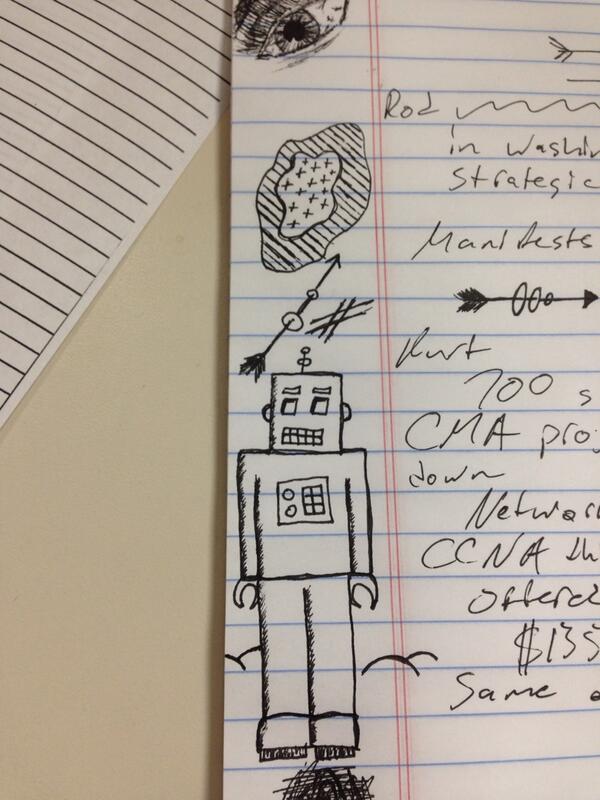 Rod
in Washin
Strategic
Manifests
Kurt
700 s
CMA pro
down
Networ
CCNA th
offered
$135
Same